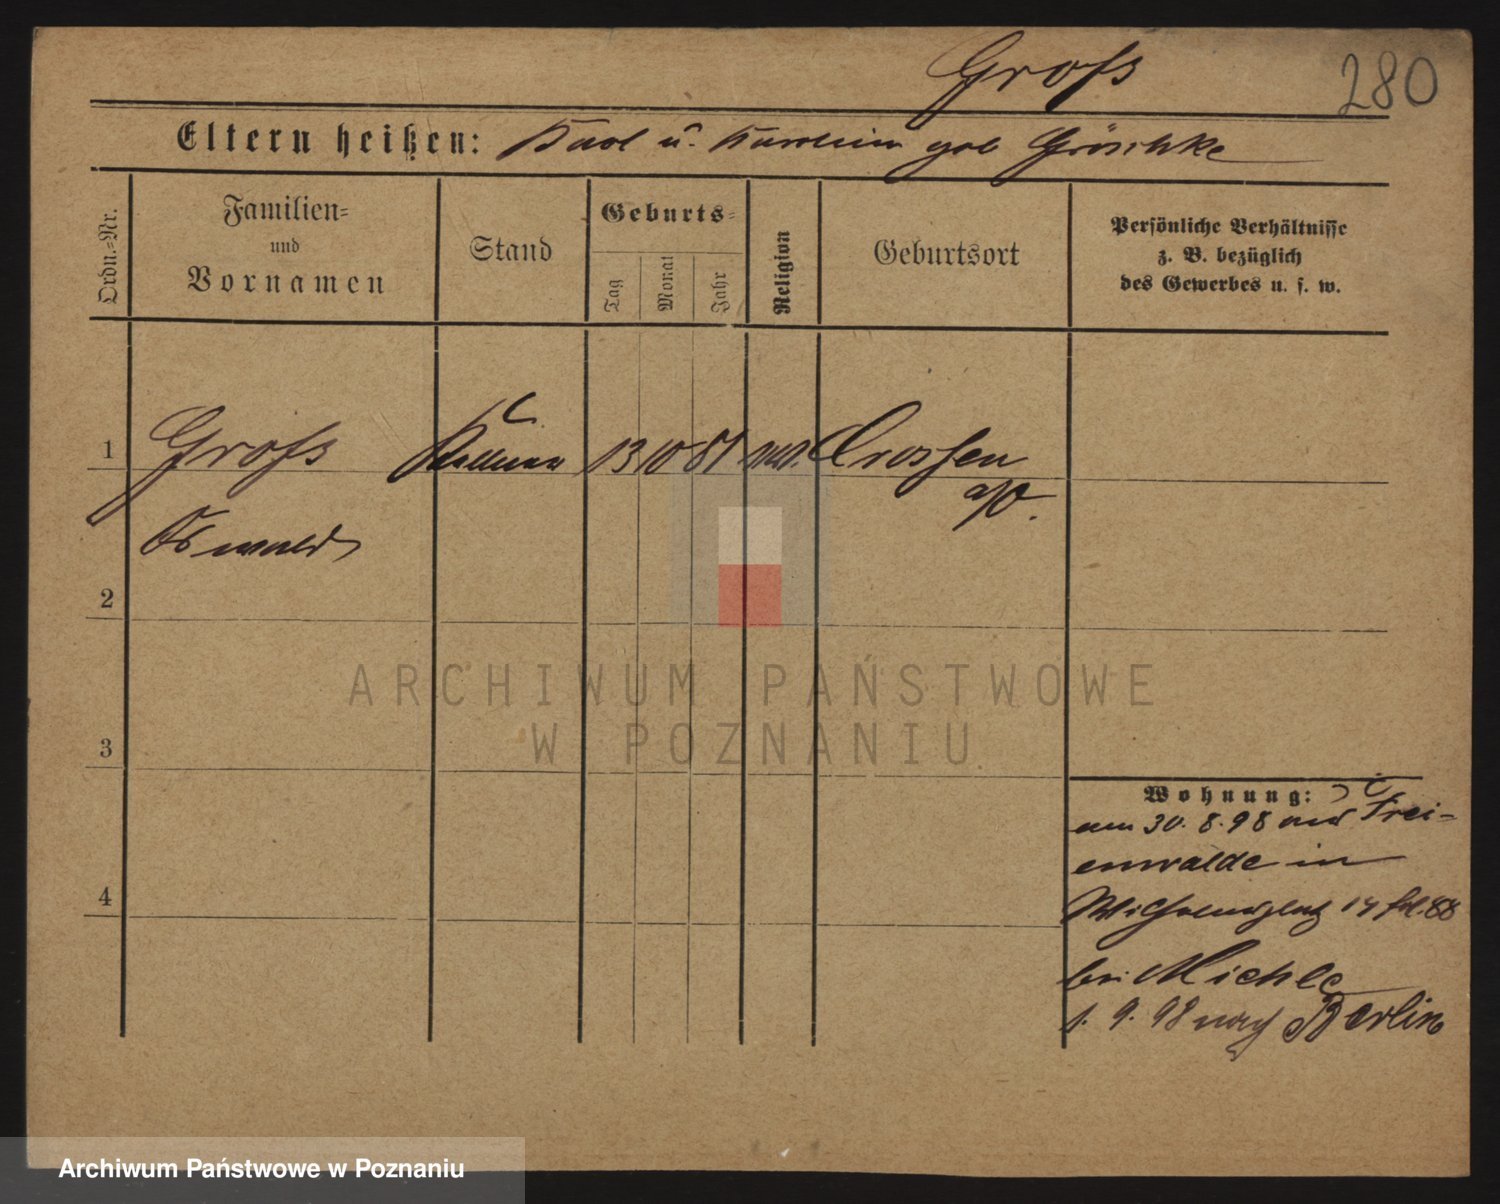 Groß
280
Eltern heißen: Karl u. Karoline geb Gröschke
Ordn.-Nr.
Familien-
und
Vornamen
Stand
Geburts-
Tag
Monat
Jahr
Religion
Geburtsort
Persönliche Verhältnisse
z. B. bezüglich
des Gewerbes u. s. w.
1
Groß
Kellner
13 10 81
Crossen
a/O.
Oswald
2
ARCHIWUM PAŃSTWOWE
W POZNANIU
3
Wohnung:
am 30. 8. 98 aus Frei-
enwalde in
Wilhelmsplatz
4
bei Michle
1. 9. 98 nach Berlin
Archiwum Państwowe w Poznaniu